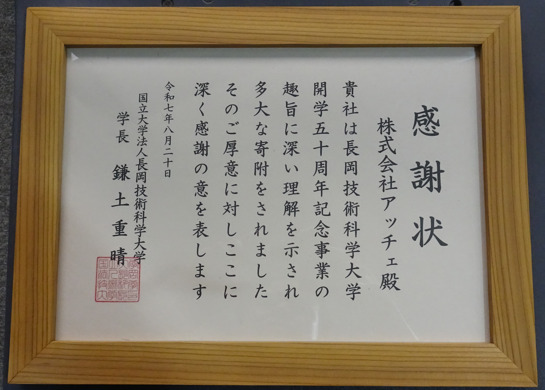 感謝状
株式会社アッチェ殿
貴社は長岡技術科学大学
開学五十周年記念事業の
趣旨に深い理解を示され
多大な寄附をされました
そのご厚意に対しここに
深く感謝の意を表します
令和七年八月二十日
国立大学法人長岡技術科学大学
学長 鎌土重晴